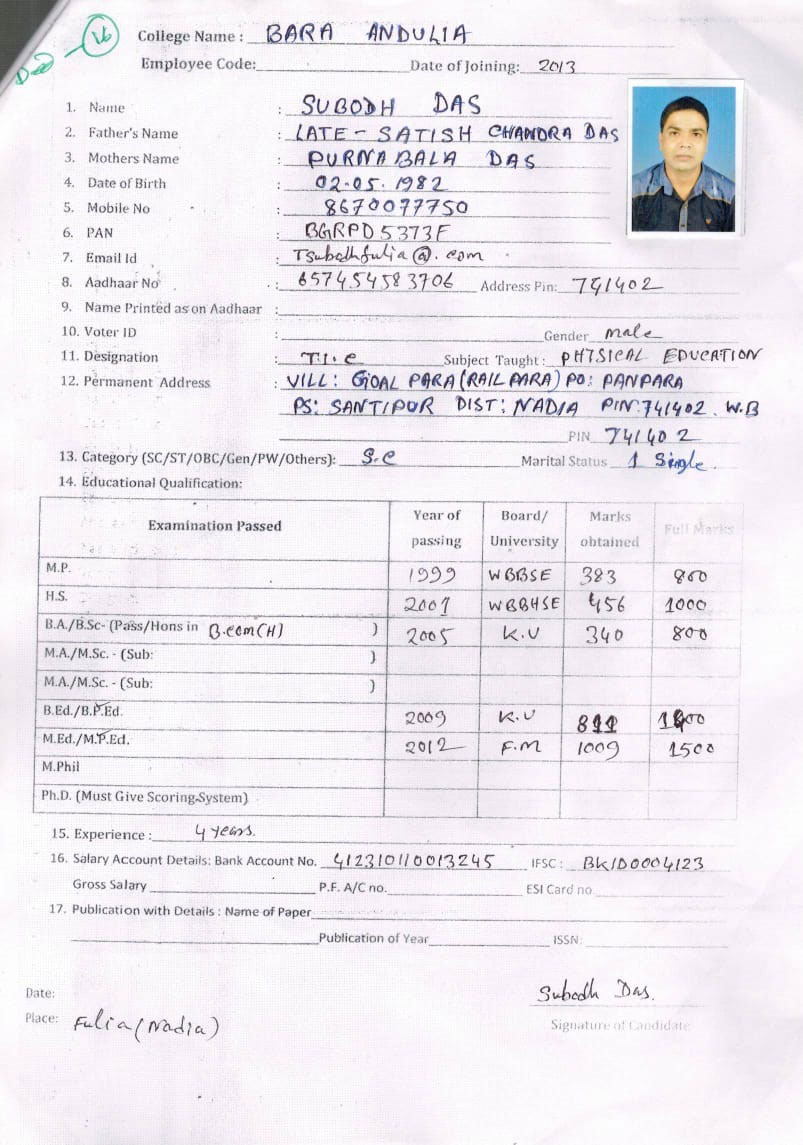 Vb
College Name : BARA ANDULIA
Employee Code: Date of Joining: 2013
1. Name : SUBODH DAS
2. Father's Name : LATE - SATISH CHANDRA DAS
3. Mothers Name : PURNABALA DAS
4. Date of Birth : 02.05.1982
5. Mobile No : 8670077750
6. PAN : BGRPD5373F
7. Email Id : Tsubodhfulia@.com
8. Aadhaar No : 657454583706 Address Pin: 741402
9. Name Printed as on Aadhaar :
10. Voter ID : Gender male
11. Designation : T.I.C Subject Taught : PHYSICAL EDUCATION
12. Permanent Address : VILL: GOAL PARA (RAIL PARA) PO: PANPARA
PS: SANTIPUR DIST: NADIA PIN: 741402. W.B
PIN 741402
13. Category (SC/ST/OBC/Gen/PW/Others): S.C Marital Status Single.
14. Educational Qualification:
Examination Passed Year of passing Board/ University Marks obtained Full Marks
M.P. 1999 WBBSE 383 800
H.S. 2001 WBBHSE 456 1000
B.A./B.Sc- (Pass/Hons in B.com(H) ) 2005 K.U 340 800
M.A./M.Sc. - (Sub: )
M.A./M.Sc. - (Sub: )
B.Ed./B.P.Ed. 2009 K.U 811
M.Ed./M.P.Ed. 2012 F.M 1009 1500
M.Phil
Ph.D. (Must Give Scoring System)
15. Experience : 4 years.
16. Salary Account Details: Bank Account No. 412310110013245 IFSC : BKID0004123
Gross Salary P.F. A/C no. ESI Card no
17. Publication with Details : Name of Paper
Publication of Year ISSN:
Date:
Subodh Das.
Place: Fulia (Nadia)
Signature of Candidate